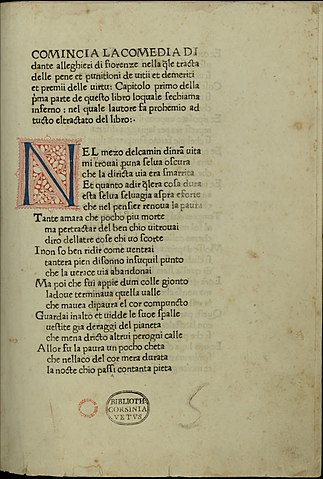 COMINCIA LACOMEDIA DI
dante alleghieri di fiorenze nella q̃le tracta
delle pene et punitioni de uitii et demeriti
et premii delle uirtu: Capitolo primo della
p̃ma parte de questo libro loquale sechiama
inferno: nel quale lautore fa prohemio ad
tucto eltractato del libro:.
NEL mezo delcamin dinr̃a uita
mi trouai p̱una selua oscura
che la diricta uia era smarrita
Et quanto adir q̃lera cosa dura
esta selua seluagia aspra eforte
che nel pensier renoua la paura
Tante amara che pocho piu morte
ma pertractar del ben chio uitrouai
diro dellatre cose chi uo scorte
I non so ben ridire come uentrai
tantera pien disonno insuquil punto
che la uerace uia abandonai
Ma poi che fui appie dum colle gionto
ladoue terminaua quella ualle
che mauea dipaura el cor compuncto
Guardai inalto et uidde le sue spalle
uestite gia deraggi del pianeta
che mena dricto altrui perogni calle
Allor fu la paura un pocho cheta
che nellaco del cor mera durata
la nocte chio passi contanta pieta
BIBLIOTH
CORSINIA
VETVS